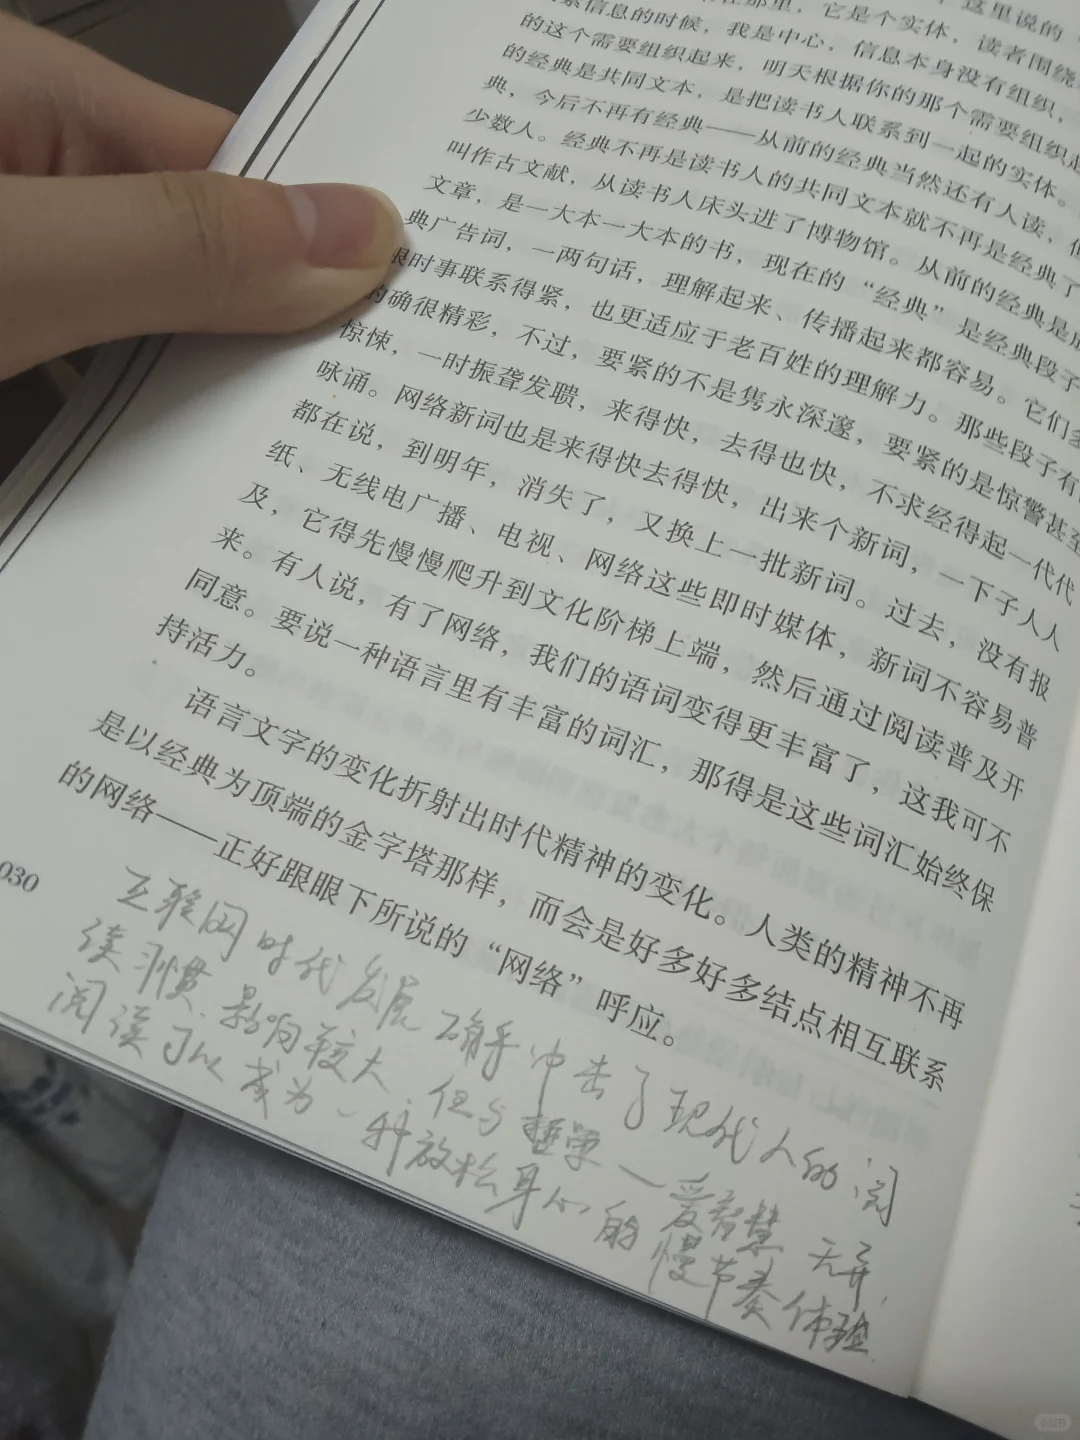 这里说的
在那里，它是个实体，读者围绕
索信息的时候，我是中心，信息本身没有组织，
的这个需要组织起来，明天根据你的那个需要组织起
的经典是共同文本，是把读书人联系到一起的实体。
典，今后不再有经典——从前的经典当然还有人读，但
少数人。经典不再是读书人的共同文本就不再是经典了
叫作古文献，从读书人床头进了博物馆。从前的经典是
文章，是一大本一大本的书，现在的“经典”是经典段子
典广告词，一两句话，理解起来、传播起来都容易。它们多
跟时事联系得紧，也更适应于老百姓的理解力。那些段子有
的确很精彩，不过，要紧的不是隽永深邃，要紧的是惊警甚至
惊悚，一时振聋发聩，来得快，去得也快，不求经得起一代代
咏诵。网络新词也是来得快去得快，出来个新词，一下子人人
都在说，到明年，消失了，又换上一批新词。过去，没有报
纸、无线电广播、电视、网络这些即时媒体，新词不容易普
及，它得先慢慢爬升到文化阶梯上端，然后通过阅读普及开
来。有人说，有了网络，我们的语词变得更丰富了，这我可不
同意。要说一种语言里有丰富的词汇，那得是这些词汇始终保
持活力。
语言文字的变化折射出时代精神的变化。人类的精神不再
是以经典为顶端的金字塔那样，而会是好多好多结点相互联系
的网络——正好跟眼下所说的“网络”呼应。
030
互联网时代发展 确乎冲击了现代人的阅
读习惯，影响较大，但与哲学一爱智慧 无异，
阅读可以成为一种放松身心的慢节奏体验
小红书